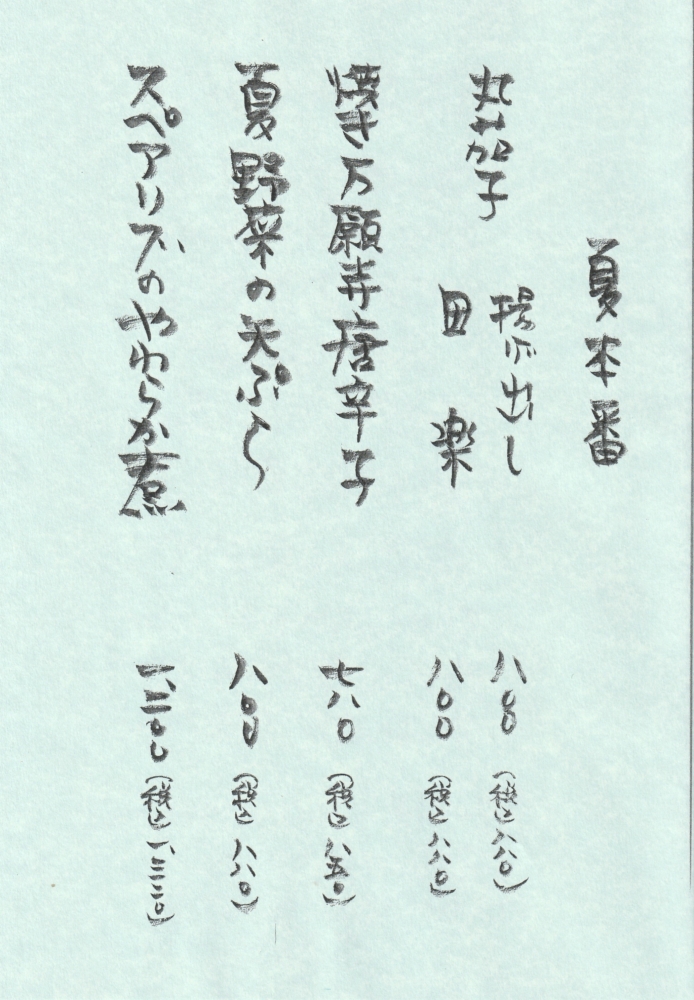 夏本番
丸茄子
揚げ出し 八〇〇 (税込 八八〇)
田楽 八〇〇 (税込 八八〇)
焼き万願寺唐辛子 七八〇 (税込 八五〇)
夏野菜の天ぷら 八〇〇 (税込 八八〇)
スペアリブのやわらか煮 一、二〇〇 (税込 一、三二〇)